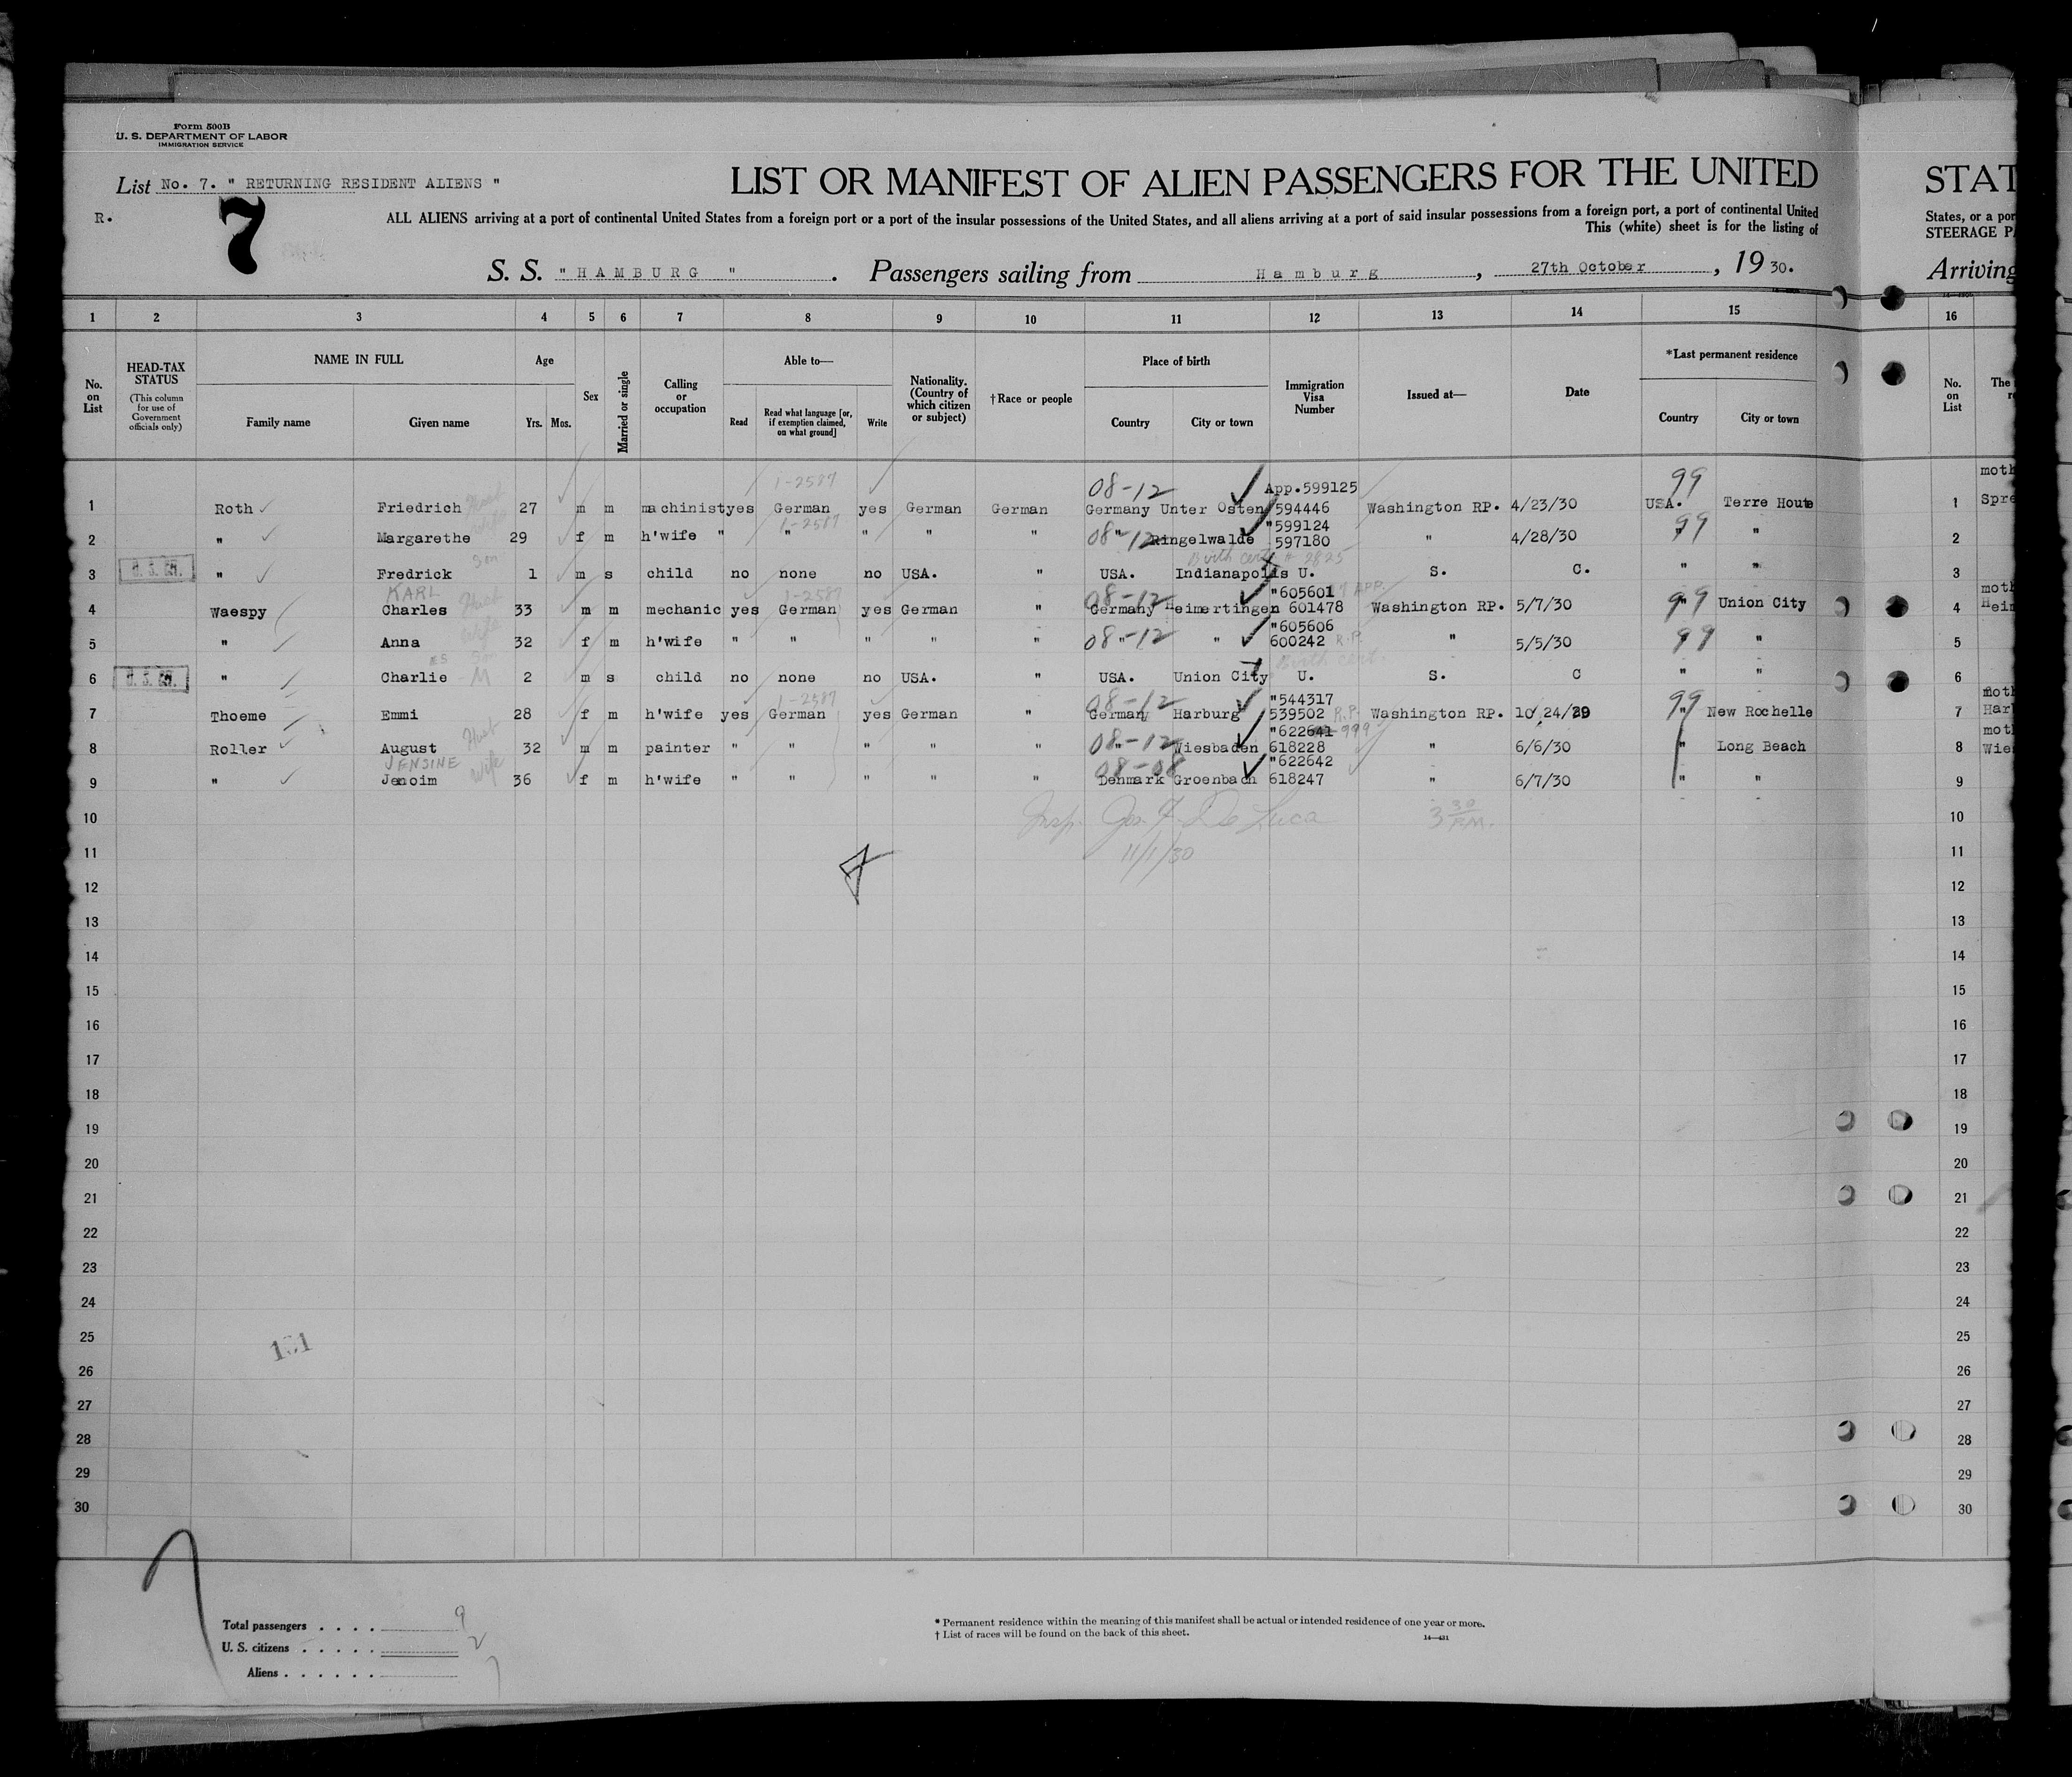 Form 500B
U. S. DEPARTMENT OF LABOR
IMMIGRATION SERVICE
List No. 7. " RETURNING RESIDENT ALIENS "
R.
7
LIST OR MANIFEST OF ALIEN PASSENGERS FOR THE UNITED
ALL ALIENS arriving at a port of continental United States from a foreign port or a port of the insular possessions of the United States, and all aliens arriving at a port of said insular possessions from a foreign port, a port of continental United
This (white) sheet is for the listing of
S. S. " HAMBURG " . Passengers sailing from Hamburg , 27th October , 19 30.
STAT
States, or a por
STEERAGE P
Arriving
1 2 3 4 5 6 7 8 9 10 11 12 13 14 15 16
No. on List
HEAD-TAX STATUS
(This column for use of Government officials only)
NAME IN FULL
Family name Given name
Age
Yrs. Mos.
Sex
Married or single
Calling or occupation
Able to—
Read
Read what language [or, if exemption claimed, on what ground]
Write
Nationality. (Country of which citizen or subject)
†Race or people
Place of birth
Country City or town
Immigration Visa Number
Issued at—
Date
*Last permanent residence
Country City or town
No. on List
The
1-2587 08-12 App.599125 99 moth
1 Roth Friedrich Husb 27 m m machinist yes German yes German German Germany Unter Osten 594446 Washington RP. 4/23/30 USA. Terre Houte 1 Spre
wife 1-2587 "599124 99
2 " Margarethe 29 f m h'wife " " " " " 08-12 " Ringelwalde 597180 " 4/28/30 " " 2
son Birth cert # 2825
3 U.S.CIT. " Fredrick 1 m s child no none no USA. " USA. Indianapolis U. S. C. " " 3
KARL Husb 1-2587 08-12 "605601 RP APP. 99 moth
4 Waespy Charles 33 m m mechanic yes German yes German " Germany Heimertingen 601478 Washington RP. 5/7/30 " Union City 4 Hein
wife "605606
5 " Anna 32 f m h'wife " " " " " 08-12 " " 600242 R.P. " 5/5/30 99 " " 5
ES son Birth cert.
6 U.S.CIT. " Charlie M 2 m s child no none no USA. " USA. Union City U. S. C " " 6
1-2587 08-12 "544317 99 moth
7 Thoeme Emmi 28 f m h'wife yes German yes German " Germany Harburg 539502 R.P. Washington RP. 10/24/29 " New Rochelle 7 Har
Husb 08-12 "622641 -999 moth
8 Roller August 32 m m painter " " " " " " Wiesbaden 618228 " 6/6/30 " Long Beach 8 Wie
JENSINE wife 08-08 "622642
9 " Jenoim 36 f m h'wife " " " " " Denmark Groenbach 618247 " 6/7/30 " " 9
10 Insp. Jos. F. De Luca 3 30 P.M. 10
11 11/1/30 11
7
12 12
13 13
14 14
15 15
16 16
17 17
18 18
19 19
20 20
21 21
22 22
23 23
24 24
25 25
26 26
27 27
28 28
29 29
30 30
Total passengers . . . . 9
U. S. citizens . . . . . 2
Aliens . . . . . . 7
* Permanent residence within the meaning of this manifest shall be actual or intended residence of one year or more.
† List of races will be found on the back of this sheet.
14—431